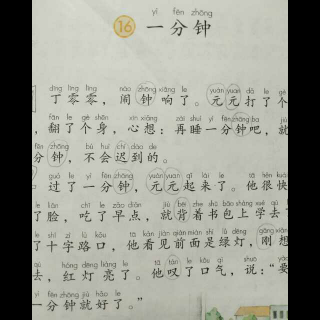 yì fēn zhōng
16 一分钟
dīng líng líng nào zhōng xiǎng le yuán yuan dǎ le gè
丁零零，闹钟响了。元元打了个
fān le gè shēn xīn xiǎng zài shuì yì fēn zhōng ba jiù
，翻了个身，心想：再睡一分钟吧，就
fēn zhōng bú huì chí dào de
分钟，不会迟到的。
guò le yì fēn zhōng yuán yuan qǐ lái le tā hěn kuài
过了一分钟，元元起来了。他很快
le liǎn chī le zǎo diǎn jiù bēi zhe shū bāo shàng xué qù
了脸，吃了早点，就背着书包上学去
le shí zì lù kǒu tā kàn jiàn qián miàn shì lǜ dēng gāng xiǎng
了十字路口，他看见前面是绿灯，刚想
hóng dēng liàng le tā tàn le kǒu qì shuō yào
去，红灯亮了。他叹了口气，说：“要
yì fēn zhōng jiù hǎo le
一分钟就好了。”